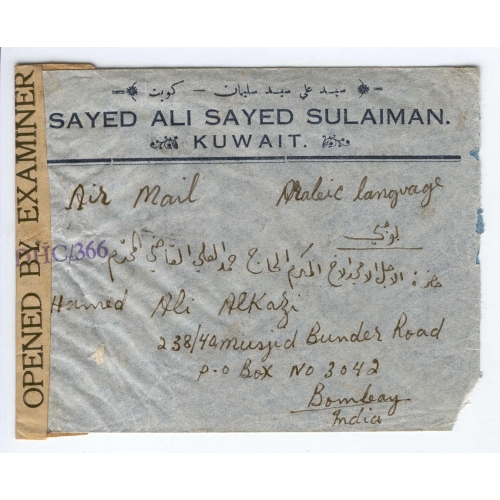 سيد علي سيد سليمان - كويت
SAYED ALI SAYED SULAIMAN.
KUWAIT.
OPENED BY EXAMINER
Air Mail
Arabic language
HC/366
حمد العلي القاضي المحترم
Hamed Ali AlKazi
238/40 musjid Bunder Road
P.O Box No 3042
Bombay
India